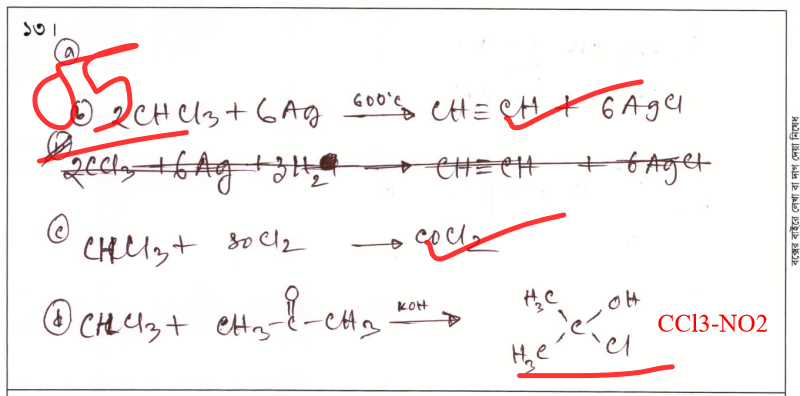 ১৩।
(a)
05
(b) 2CHCl3 + 6Ag 600°C → CH≡CH + 6AgCl
(b) 2CCl3 + 6Ag + 3H2 → CH≡CH + 6AgCl
(c) CHCl3 + SOCl2 → COCl2
(d) CHCl3 + CH3-C-CH3 KOH → H3C OH
O
C
H3C Cl
CCl3-NO2
বক্সের বাইরে লেখা বা দাগ দেয়া নিষেধ